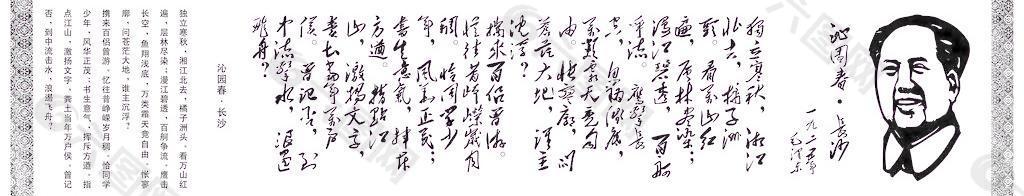 沁园春·長沙
一九二五年
毛泽东
独立寒秋,湘江
北去,橘子洲
头。看万山红
遍,层林尽染;
漫江碧透,百舸
争流。鹰击长
空,鱼翔浅底,
万类霜天竞自
由。怅寥廓,问
苍茫大地,谁主
沉浮?
携来百侣曾游。
忆往昔峥嵘岁月
稠。恰同学少
年,风华正茂;
书生意气,挥斥
方遒。指点江
山,激扬文字,
粪土当年万户
侯。曾记否,到
中流击水,浪遏
飞舟?
沁园春·长沙
独立寒秋,湘江北去,橘子洲头。看万山红
遍,层林尽染;漫江碧透,百舸争流。鹰击
长空,鱼翔浅底,万类霜天竞自由。怅寥
廓,问苍茫大地,谁主沉浮?
携来百侣曾游。忆往昔峥嵘岁月稠。恰同学
少年,风华正茂;书生意气,挥斥方遒。指
点江山,激扬文字,粪土当年万户侯。曾记
否,到中流击水,浪遏飞舟?